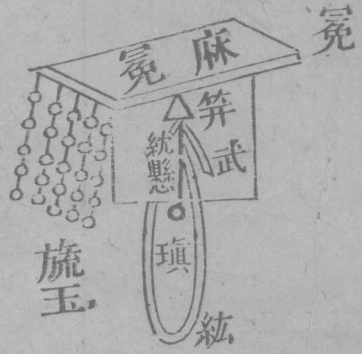 冕
麻冕
笄
武
紞懸
瑱
紘
旒玉